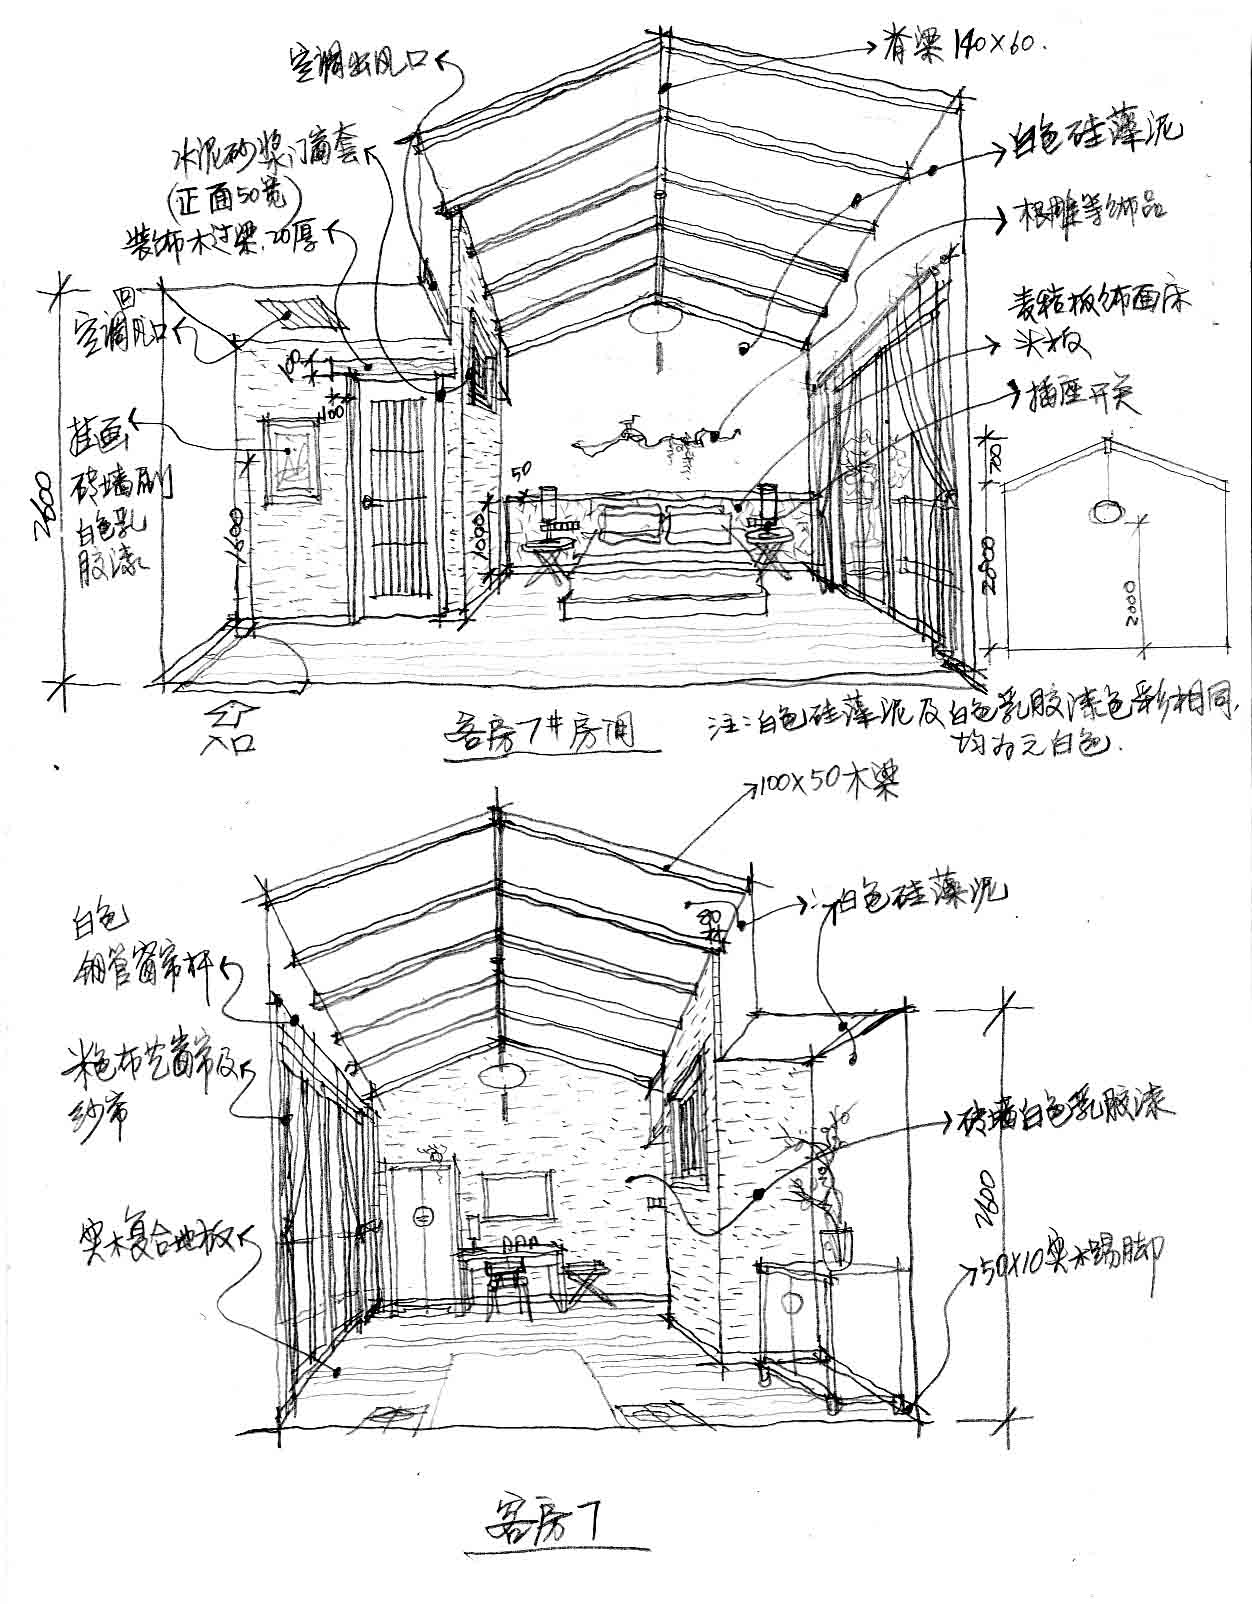 空调出风口
脊梁 140×60.
水泥砂浆门窗套
(正面50宽)
装饰木过梁.20厚
白色硅藻泥
根雕等饰品
回
空调风口
麦秸板饰面床
头板
插座开关
挂画
砖墙刷
白色乳
胶漆
2600
1600
100
50
1000
700
2800
2000
入口
客房7#房间
注:白色硅藻泥及白色乳胶漆色彩相同,
均为元白色.
100×50木梁
白色硅藻泥
80
白色
钢管窗帘杆
米色布艺窗帘及
纱帘
砖墙白色乳胶漆
2600
实木复合地板
50×10实木踢脚
客房7